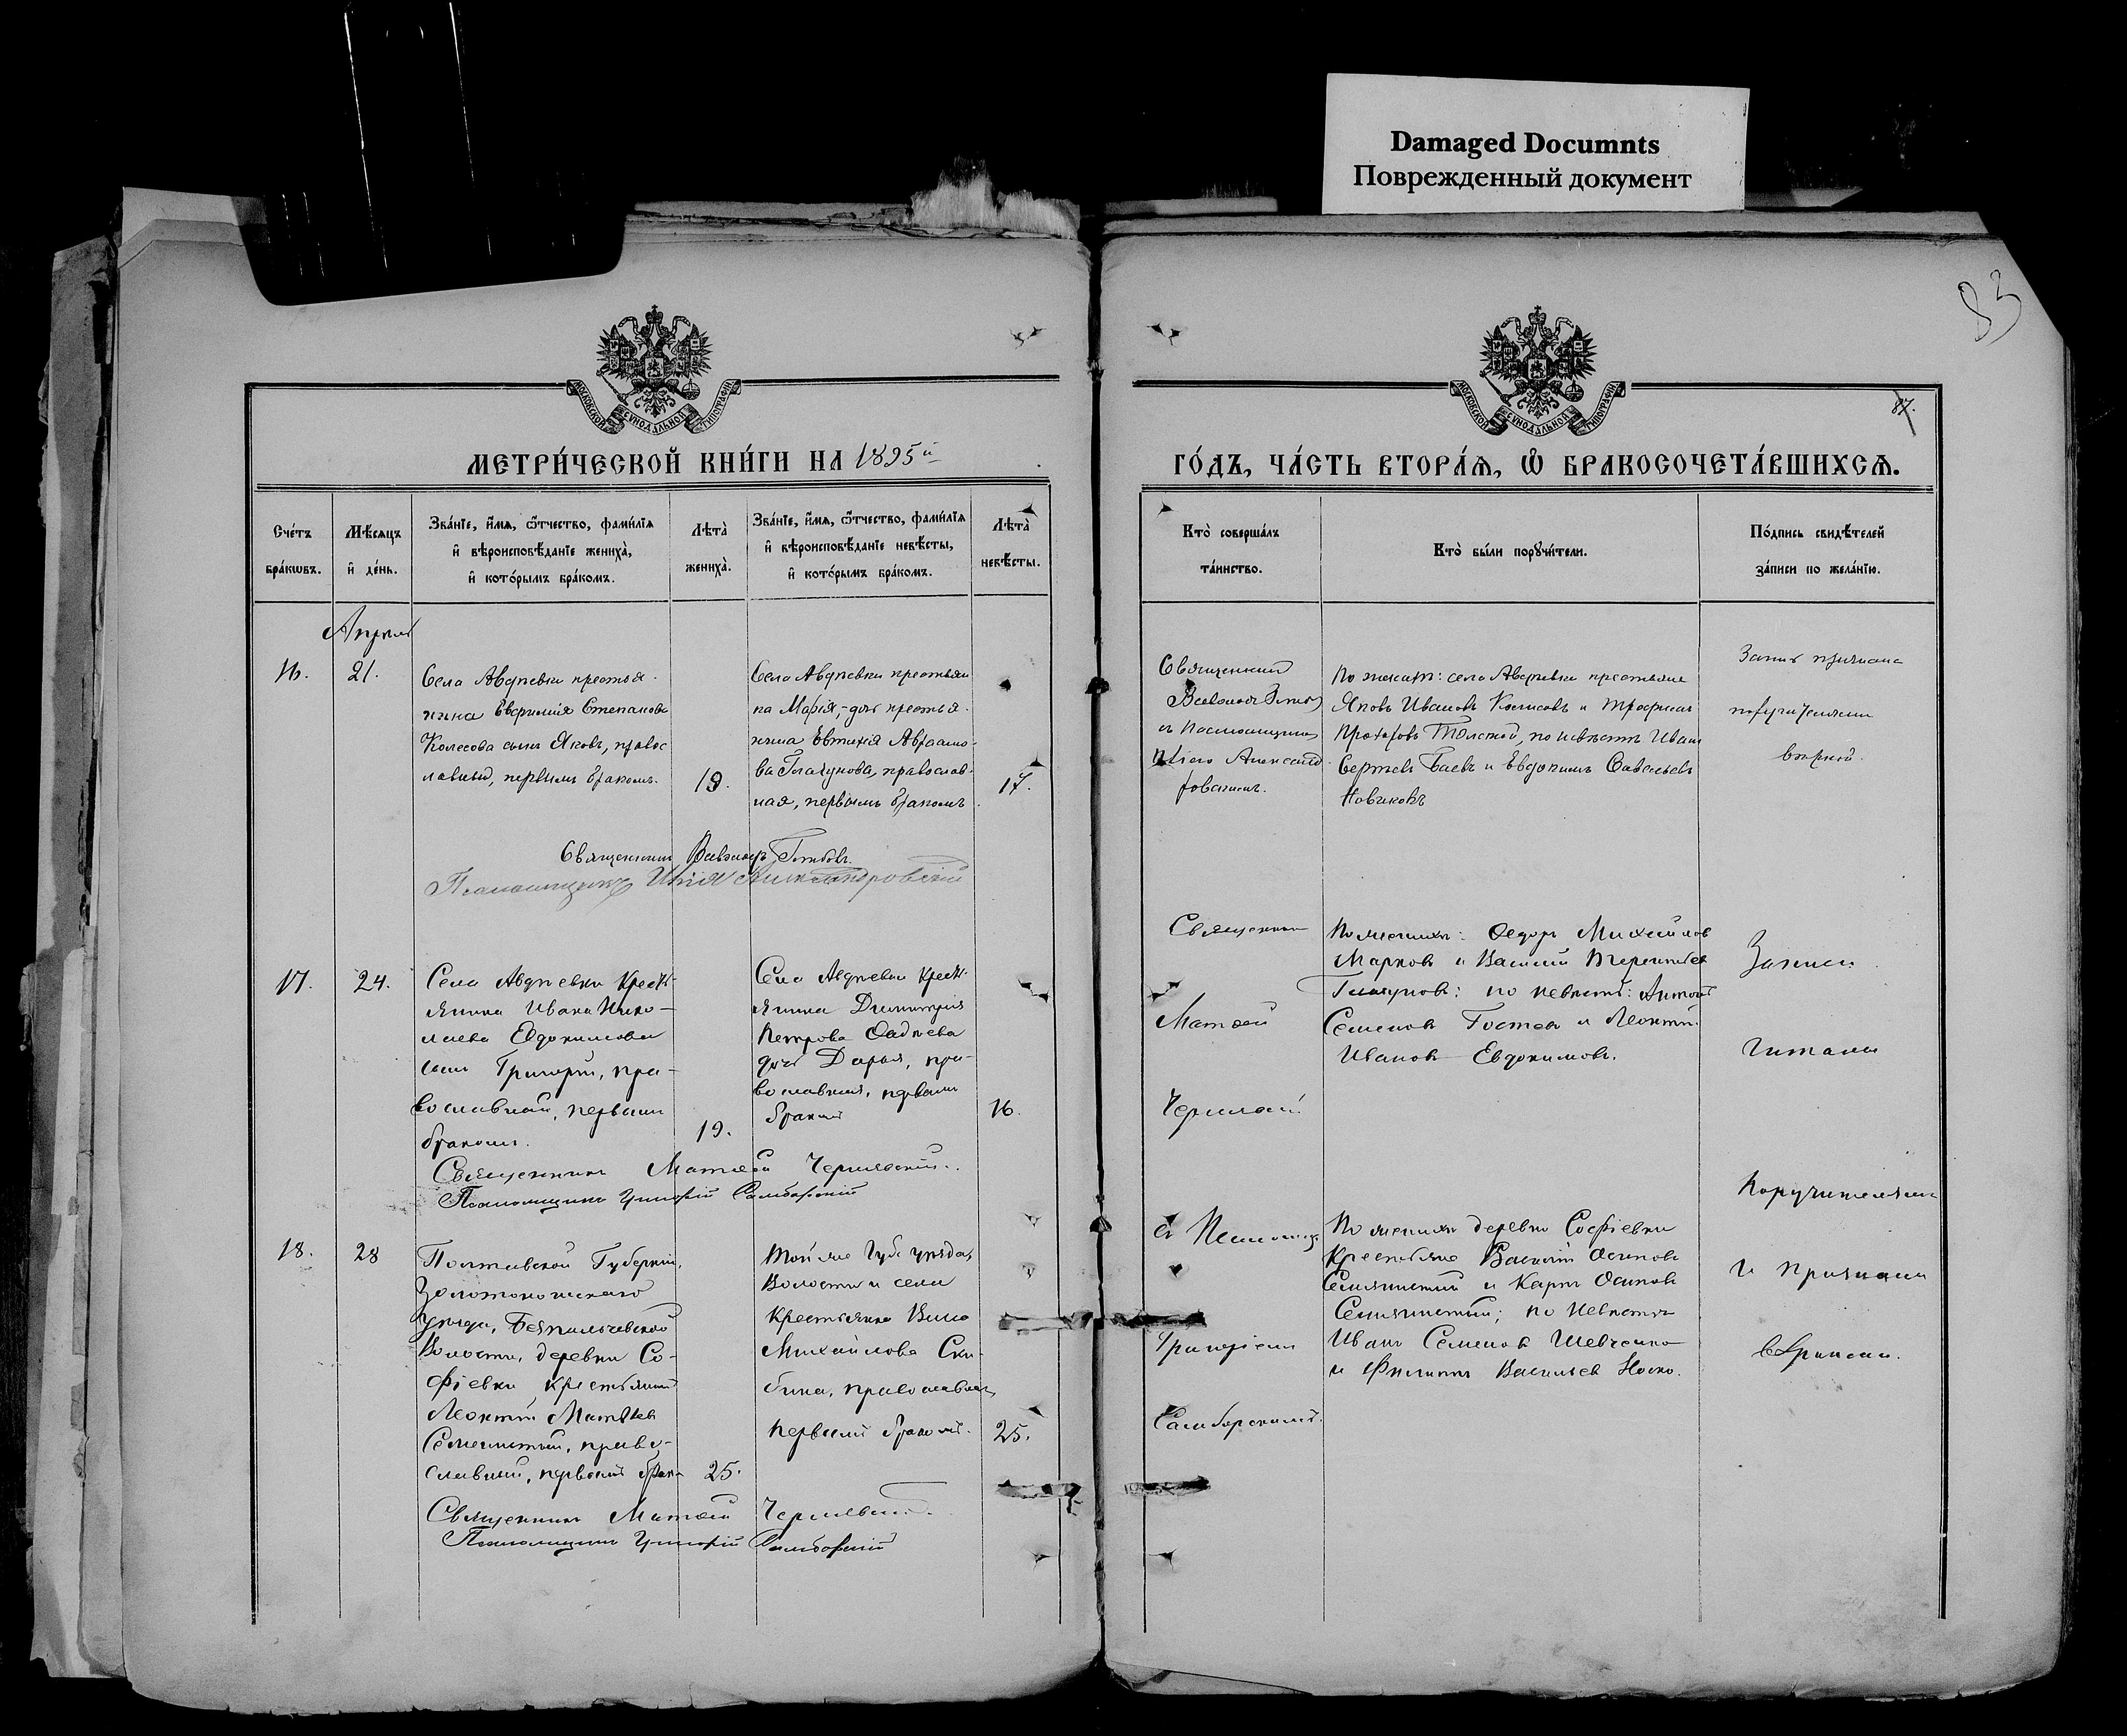 Damaged Documnts
Поврежденный документ
83
МОСКОВСКОЙ СѴНОДАЛЬНОЙ ТИПОГРАФІИ
МОСКОВСКОЙ СѴНОДАЛЬНОЙ ТИПОГРАФІИ
87.
МЕТРИ́ЧЕСКОЙ КНИ́ГИ НА 1895й
ГО́ДЪ, ЧА́СТЬ ВТОРА́Я, Ѡ БРАКОСОЧЕТА́ВШИХСЯ.
Сче́тъ бра́кѡвъ.
Мѣ́сяцъ и де́нь.
Зва́нїе, и́мя, ѻ́тчество, фами́лїя
и вѣроисповѣ́данїе жениха̀,
и кото́рымъ бра́комъ.
Лѣта̀ жениха̀.
Зва́нїе, и́мя, ѻ́тчество, фами́лїя
и вѣроисповѣ́данїе невѣ́сты,
и кото́рымъ бра́комъ.
Лѣта̀ невѣ́сты.
Кто̀ соверша́лъ та́инство.
Кто̀ бы́ли порꙋчи́тели.
По́дпись свидѣ́телей за́писи по жела́нїю.
Апрель
16.
21.
Села Авдѣевки крестья-
нина Евфимія Степанова
Колесова сынъ Яковъ, правос
лавный, первымъ бракомъ.
19.
Села Авдѣевки крестьян
ка Марія, - дочь крестья-
нина Евтихія Авраамо-
ва Глагунова, православ-
ная, первымъ бракомъ
17.
Священникъ
съ Псаломщикомъ
Иліею Александ
ровскимъ.
По женихѣ: села Авдѣевки крестьяне
Яковъ Ивановъ и Трофимъ
Толстой, по невѣстѣ Иванъ
Сергѣевъ Баевъ и Евдокимъ Савельевъ
Новиковъ
Запись
поручителями
вѣрной.
Священникъ
Псаломщикъ Илія Александровскій
17.
24.
Села Авдѣевки Кресть-
янина Ивана Нико-
лаева Евдокимова
сынъ Григорій, пра-
вославный, первымъ
бракомъ.
19.
Села Авдѣевки Кресть-
янина Димитрія
Петрова Авдѣева
дочь Дарья, пра-
вославная, первымъ
бракомъ
16.
Священникъ
Матѳей
По женихѣ: Ѳедоръ Михайловъ
Марковъ и Василій Терентьевъ
Глагуновъ: по невѣстѣ: Антонъ
Семеновъ Гостевъ и Леонтій
Ивановъ Евдокимовъ.
Записи
читаны
Поручителями
и признаны
вѣрными.
Священникъ Матѳей Чернявскій.
Псаломщикъ Григорій Самборскій
18.
28
Полтавской Губерніи,
Золотоношскаго
уѣзда,
Волости, деревни Со-
фіевки крестьянинъ
Леонтій Матвѣевъ
право-
славный, первымъ брак
25.
Той же Губ. уѣзда,
Волости и села
Крестьянка
Михайлова Ски-
бина, православная
первымъ бракомъ.
25.
съ Псаломщ.
Григоріемъ
Самборскимъ.
По женихѣ деревни Софіевки
Крестьяне Василій Осиповъ
и Карпъ Осиповъ
по невѣстѣ
Иванъ Семеновъ Шевченко
и Филиппъ Васильевъ Носко.
Священникъ Матѳей Чернявскій.
Псаломщикъ Григорій Самборскій